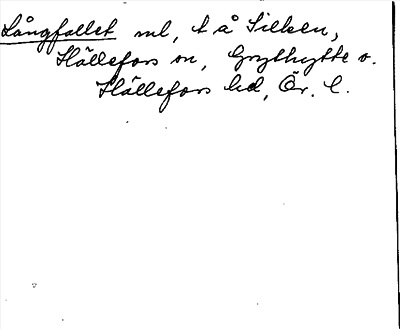 Långfallet ml, t å Silken,
Hällefors sn, Grythytte o.
Hällefors hd, Ör. l.